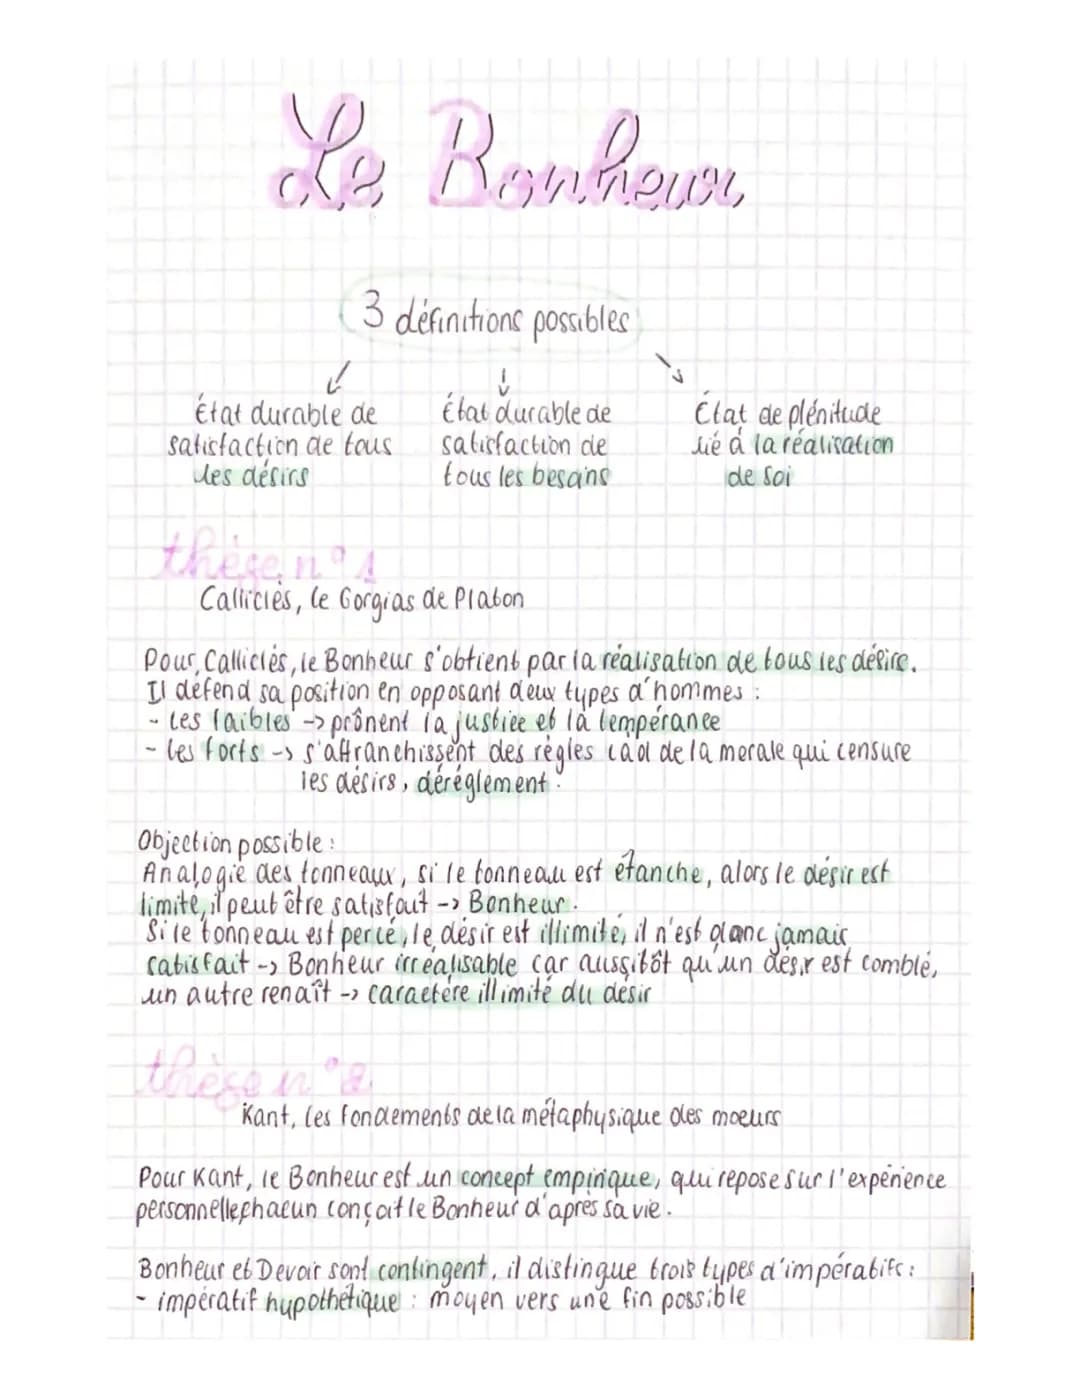 Le Bonheur
3 définitions possibles
État durable de satisfaction de tous les désirs
État durable de satisfaction de tous les besoins
État de plénitude lié à la réalisation de soi
thèse n°1
Calliclès, le Gorgias de Platon
Pour Calliclès, le Bonheur s'obtient par la réalisation de tous les désirs.
Il défend sa position en opposant deux types d'hommes :
- Les faibles -> prônent la justice et la tempérance
- les forts -> s'affranchissent des règles càd de la morale qui censure
les désirs, dérèglement.
Objection possible :
Analogie des tonneaux, si le tonneau est étanche, alors le désir est
limité, il peut être satisfait -> Bonheur.
Si le tonneau est percé, le désir est illimité, il n'est donc jamais
satisfait -> Bonheur irréalisable car aussitôt qu'un désir est comblé,
un autre renaît -> caractère illimité du désir
thèse n°2
Kant, les fondements de la métaphysique des moeurs
Pour Kant, le Bonheur est un concept empirique, qui repose sur l'expérience
personnelle chacun conçoit le Bonheur d'après sa vie.
Bonheur et Devoir sont contingent, il distingue trois types d'impératifs :
- impératif hypothétique : moyen vers une fin possible